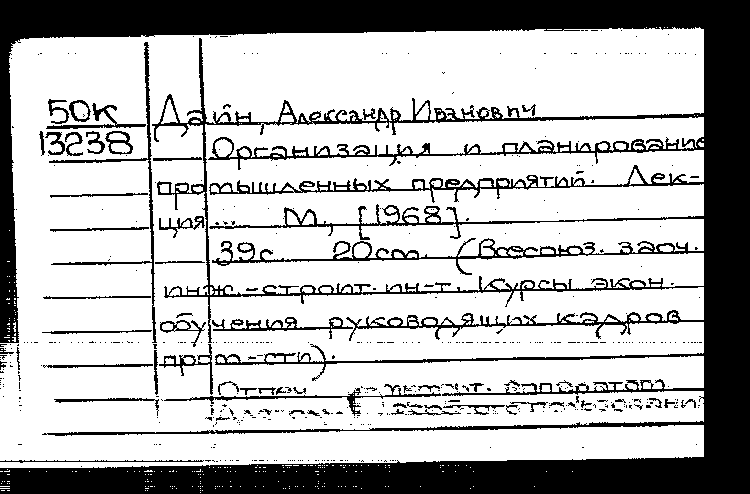 50К Дайн, Александр Иванович
13238 Организация и планирование
промышленных предприятий. Лек-
ция... М., [1968].
39с. 20см. (Всесоюз. заоч.
инж.-строит. ин-т. Курсы экон.
обучения руководящих кадров
пром-сти).
Отпеч. множит. аппаратом